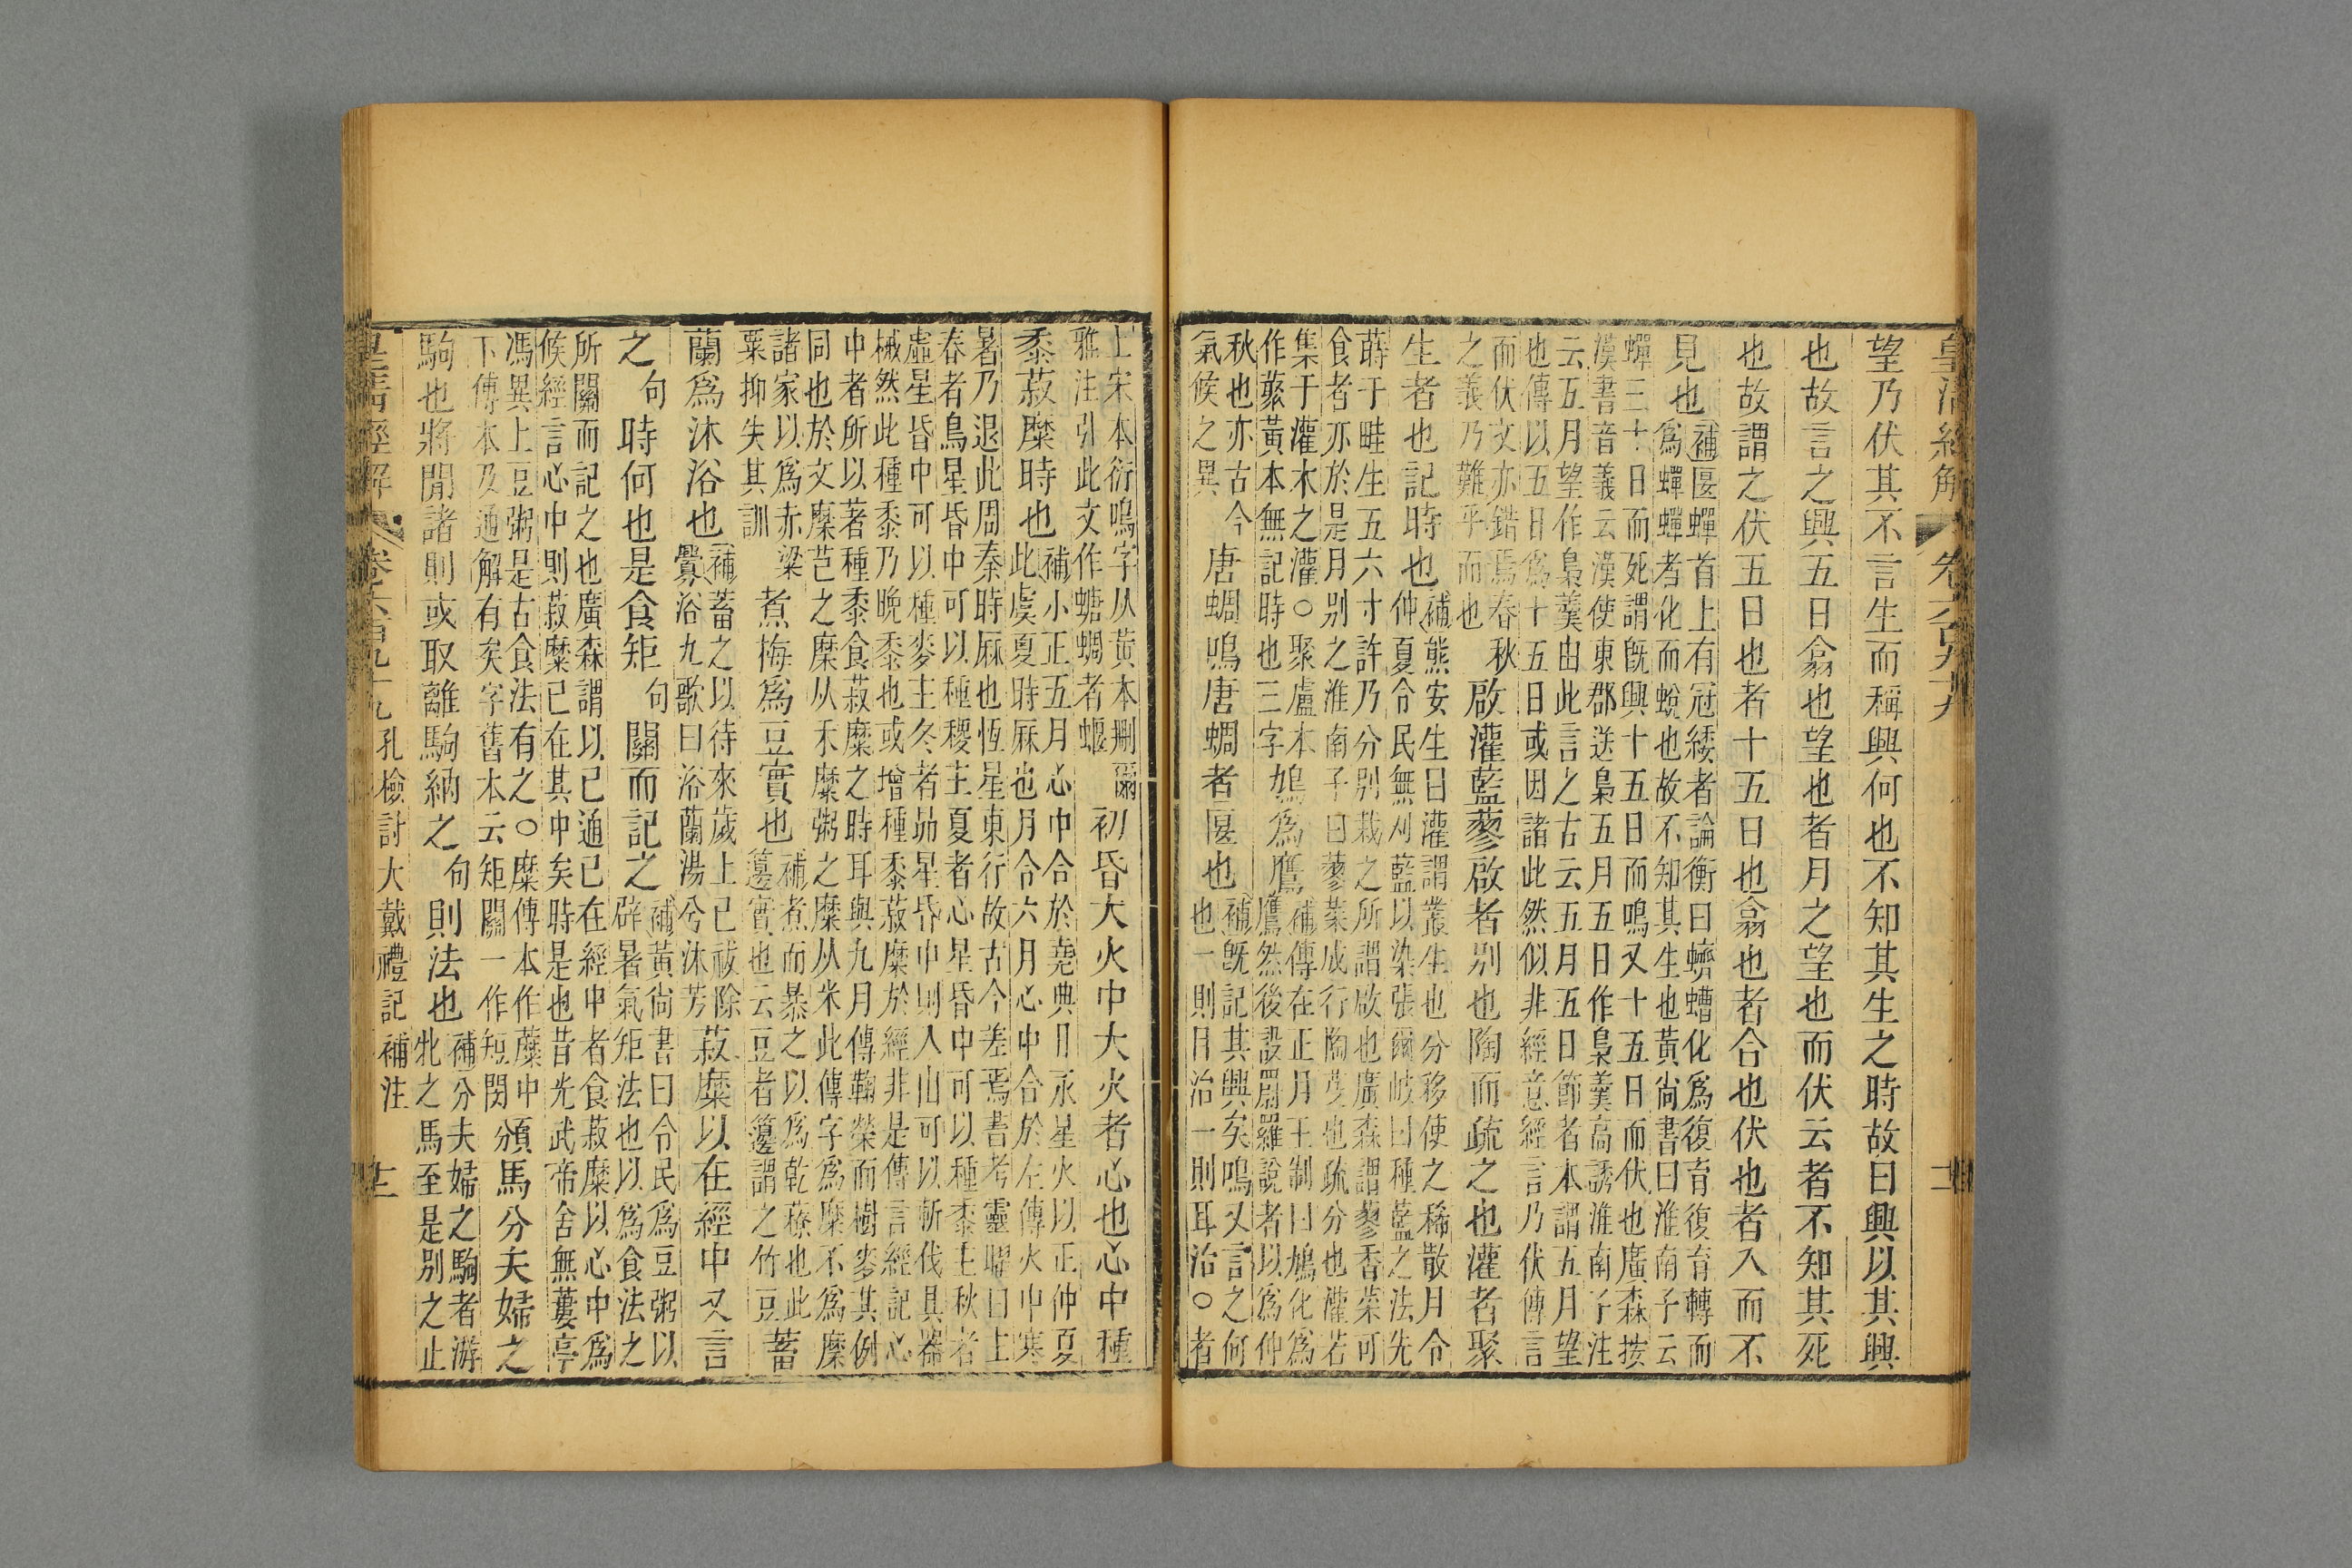 皇清經解 卷六百九十九 十二
望乃伏其不言生而稱興何也不知其生之時故曰興以其興
也故言之興五日翕也望也者月之望也而伏云者不知其死
也故謂之伏五日也者十五日也翕也者合也伏也者入而不
見也
補匽蟬首上有冠緌者論衡曰蠐螬化爲復育復育轉而
爲蟬蟬者化而蛻也故不知其生也黃尙書曰淮南子云
蟬三十日而死謂旣興十五日而鳴又十五日而伏也廣森按
漢書音義云漢使東郡送梟五月五日作梟羹高誘淮南子注
云五月望作梟羹由此言之古云五月五日節者本謂五月望
也傳以五日爲十五日或因諸此然似非經意經言乃伏傳言
而伏文亦錯焉春秋
之義乃難乎而也
啟灌藍蓼啟者別也陶而疏之也灌者聚
生者也記時也
補熊安生曰灌謂叢生也分移使之稀散月令
仲夏令民無刈藍以染張爾岐曰種藍之法先
蒔于畦生五六寸許乃分別栽之所謂啟也廣森謂蓼香菜可
食者亦於是月別之淮南子曰蓼菜成行陶茂也疏分也灌若
集于灌木之灌○聚盧本
作藂黃本無記時也三字
鳩爲鷹
補傳在正月王制曰鳩化爲
鷹然後設罻羅說者以爲仲
秋也亦古今
氣候之異
唐蜩鳴唐蜩者匽也
補旣記其興矣鳴又言之何
也一則日治一則耳治○者
上宋本衍鳴字从黃本刪爾
雅注引此文作螗蜩者蝘
初昏大火中大火者心也心中種
黍菽糜時也
補小正五月心中合於堯典日永星火以正仲夏
此虞夏時厤也月令六月心中合於左傳火中寒
暑乃退此周秦時厤也恆星東行故古今差焉書考靈曜曰上
春者鳥星昏中可以種稷主夏者心星昏中可以種黍主秋者
虛星昏中可以種麥主冬者昴星昏中則入山可以斬伐具器
械然此種黍乃晚黍也或增種黍菽糜於經非是傳言經記心
中者所以著種黍食菽糜之時耳與九月傳鞠榮而樹麥其例
同也於文穈芑之穈从禾糜粥之糜从米此傳字爲糜不爲穈
諸家以爲赤粱
粟抑失其訓
煮梅爲豆實也
補煮而暴之以爲乾䕩也此
籩實也云豆者籩謂之竹豆
蓄
蘭爲沐浴也
補蓄之以待來歲上巳祓除
釁浴九歌曰浴蘭湯兮沐芳
菽糜以在經中又言
之句時何也是食矩句關而記之
補黃尙書曰令民爲豆粥以
辟暑氣矩法也以爲食法之
所關而記之也廣森謂以已通已在經中者食菽糜以心中爲
候經言心中則菽糜已在其中矣時是也昔光武帝舍無蔞亭
馮異上豆粥是古食法有之○糜傳本作蘪中
下傳本及通解有矣字舊本云矩關一作短閔
頒馬分夫婦之
駒也將閒諸則或取離駒納之句則法也
補分夫婦之駒者游
牝之馬至是別之止
皇清經解 卷六百九十九 孔檢討大戴禮記補注 十二